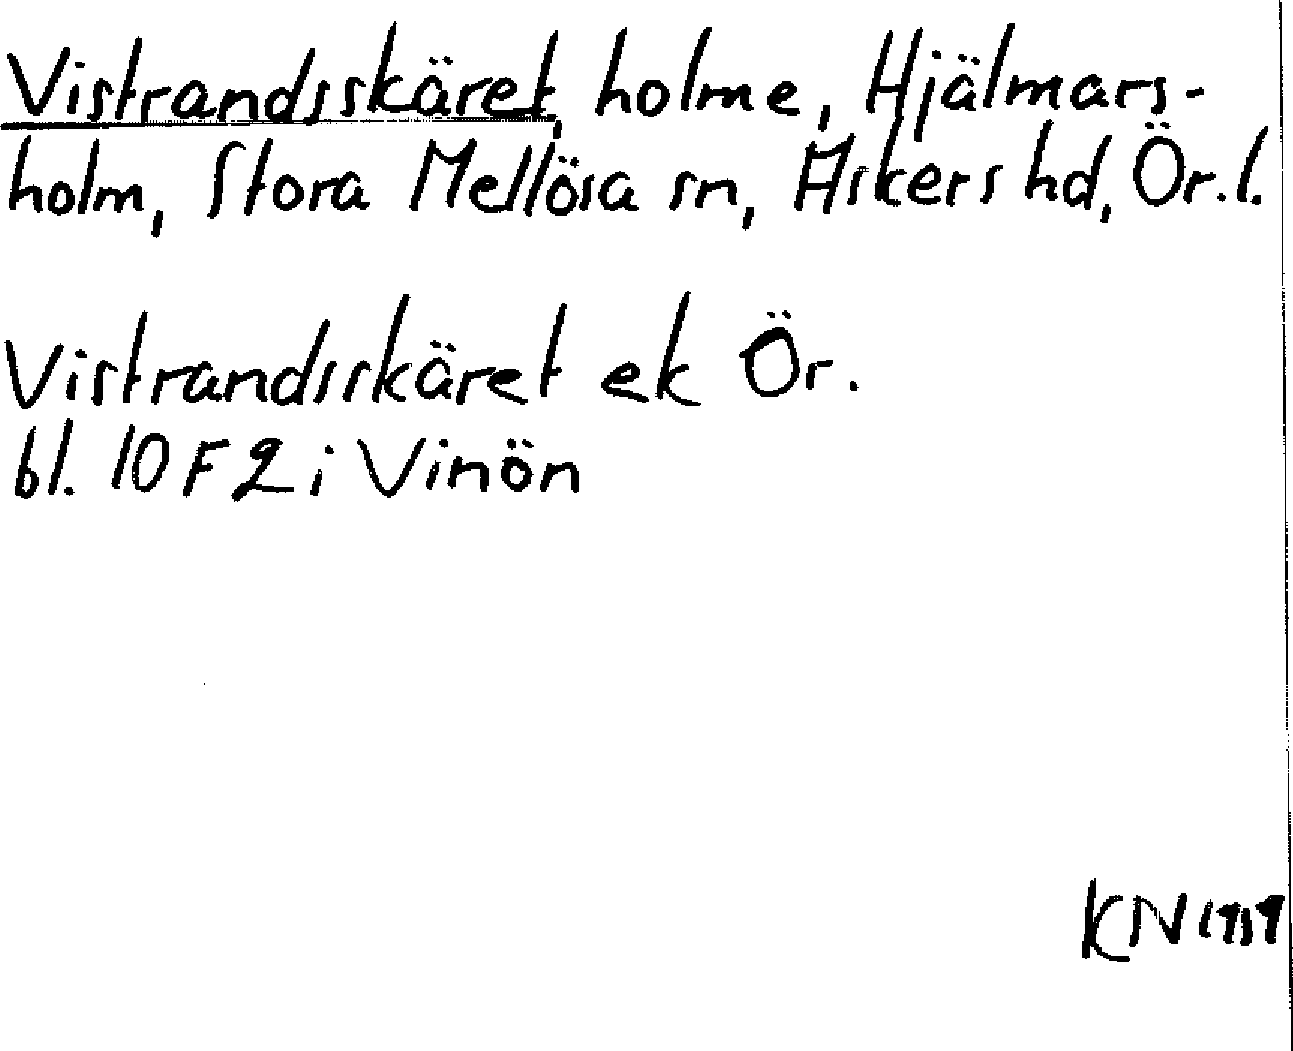 Vistrandsskäret, holme, Hjälmars-
holm, Stora Mellösa sn, Askers hd, Ör.l.
Vistrandsskäret ek Ör.
bl. 10 F 2 i Vinön
KN